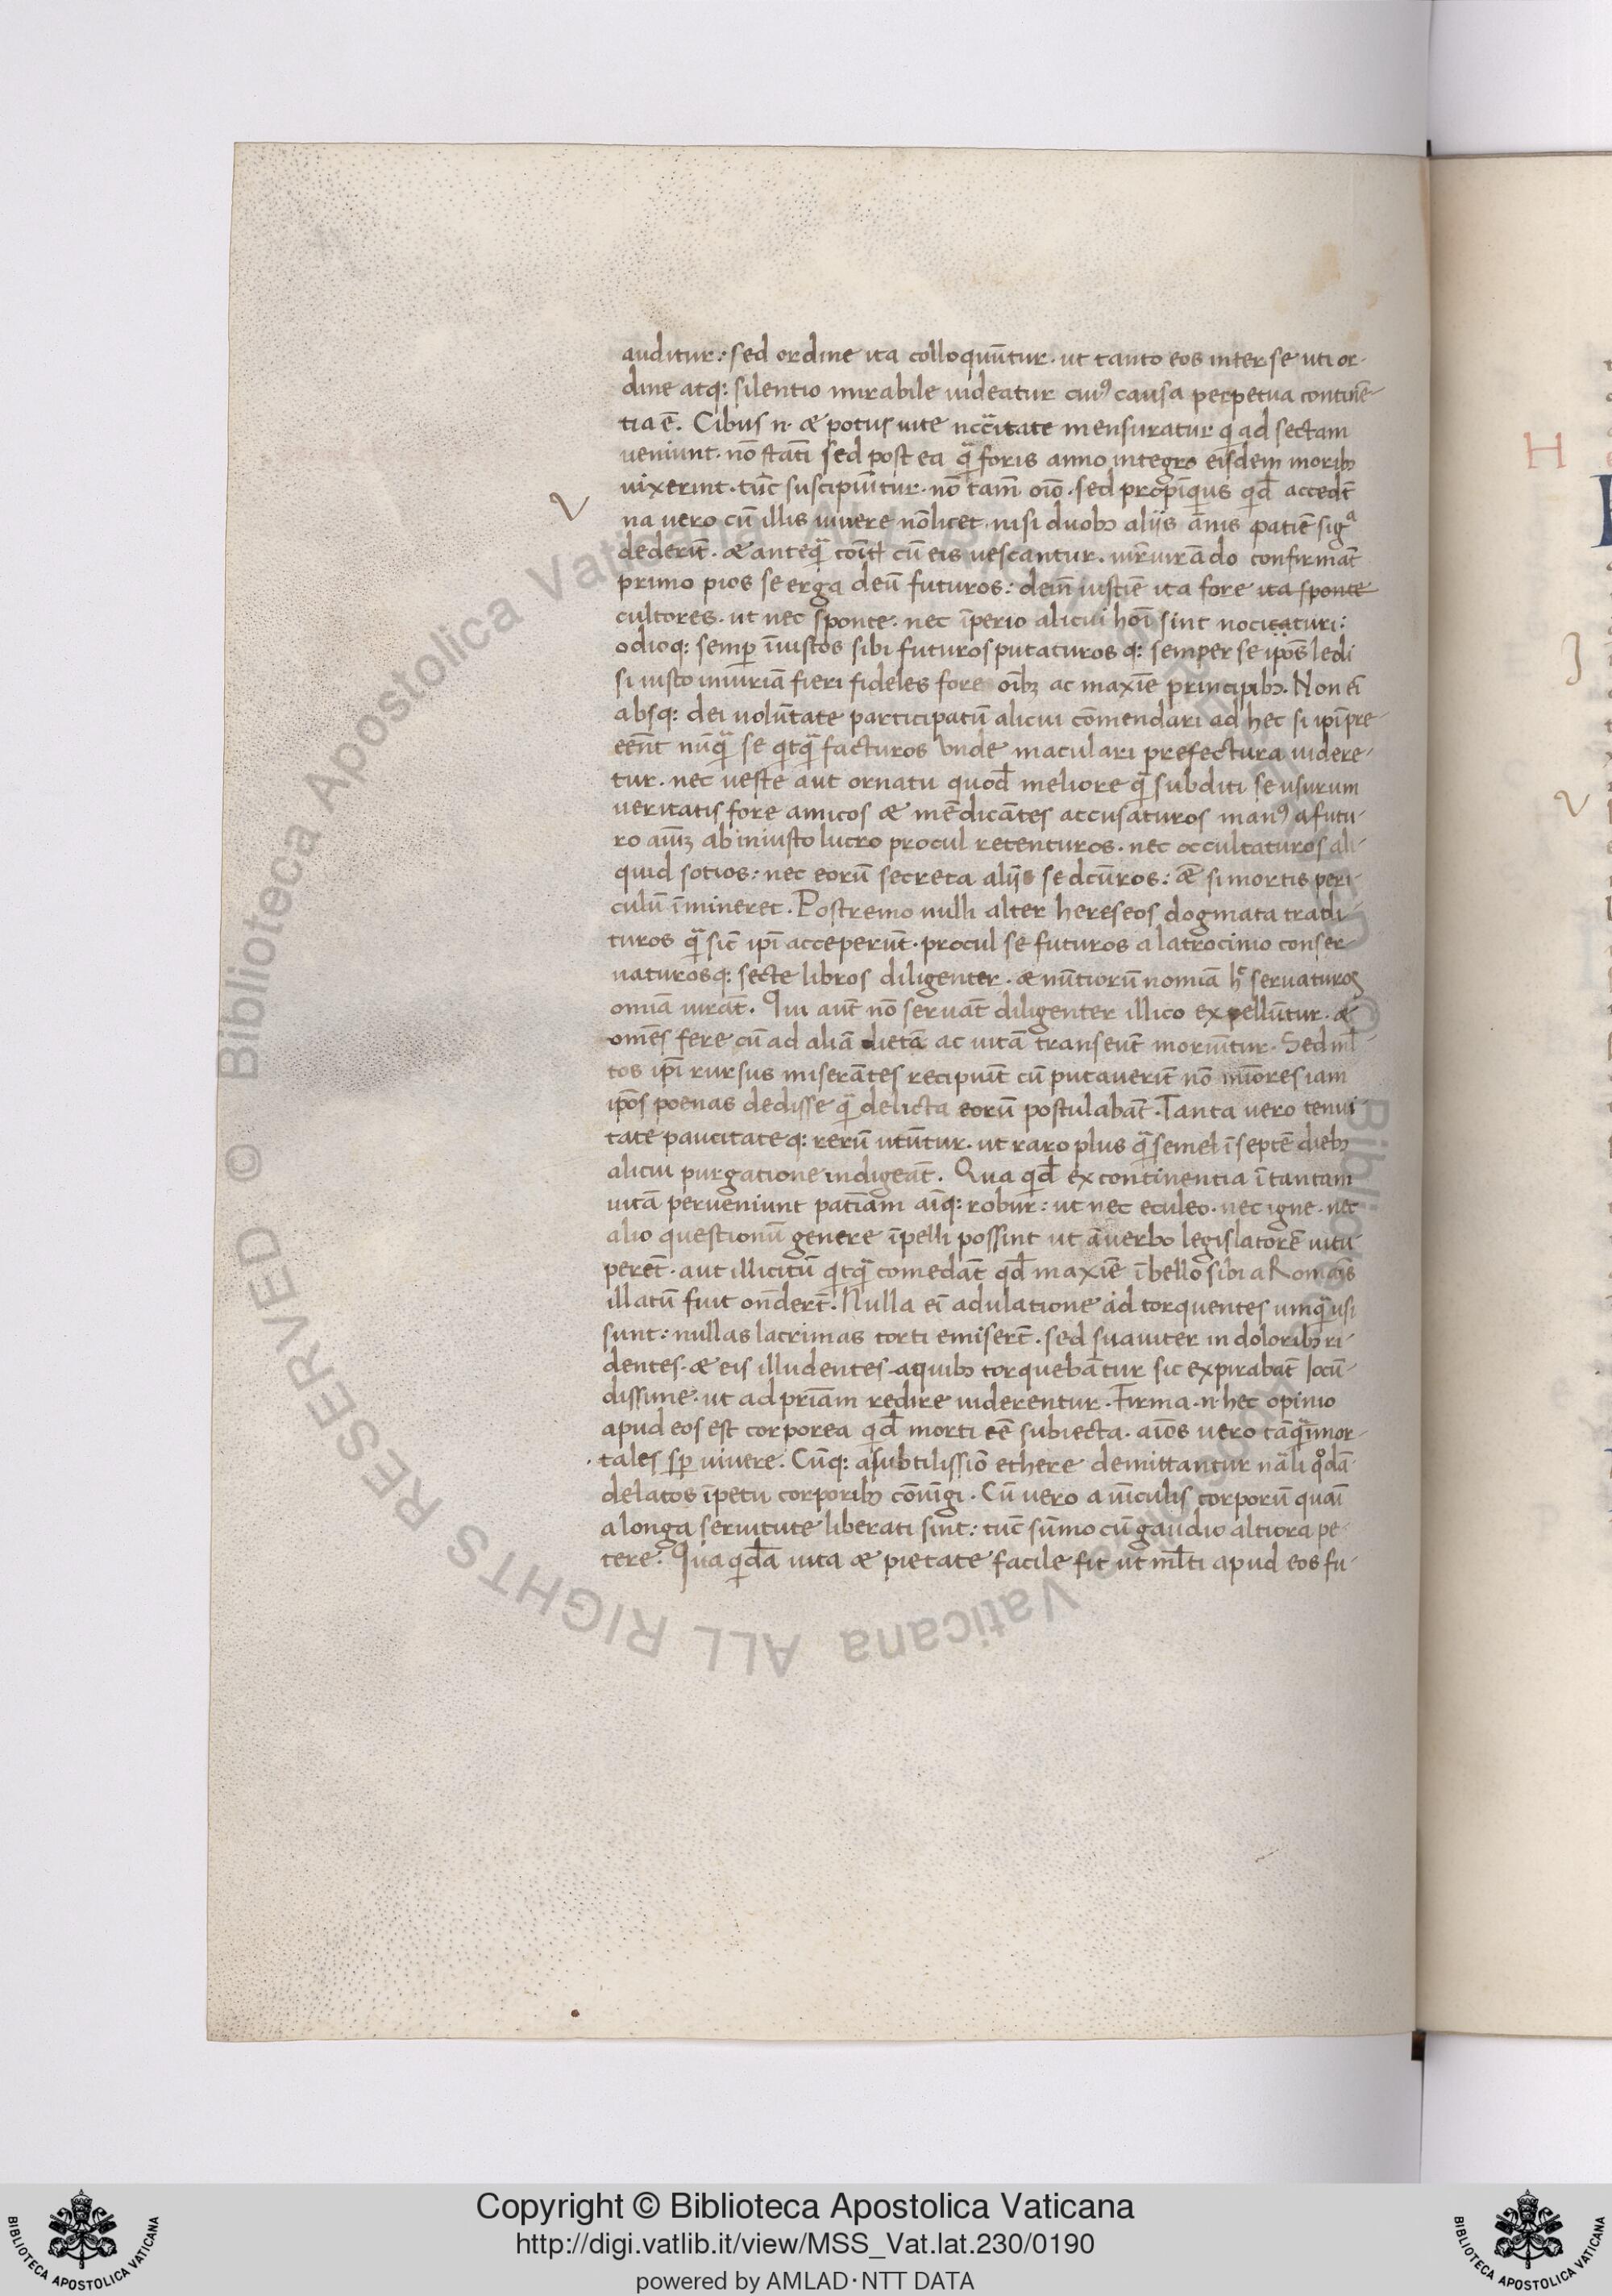 auditur: sed ordine ita colloquūtur· ut tanto eos inter se uti or-
dine atq: silentio mirabile uideatur cuiꝰ causa perpetua contine-
tia ē. Cibus n· & potus uite nccitate mensuratur q ad sectam
ueniunt· nō stati sed post ea qᷓ foris anno integro eisdem moribꝫ
uixerint· tūc suscipiūtur· nō tam̄ oīo· sed propīquus qd̄ accedt̄
V
na uero cū illis uiuere nō licet nisi duobꝫ aliis ānis patiē sigᵃ
dederit̄· & anteqᷓ cū eis uescantur· iureiurādo confirmāt
primo pios se erga deū futuros: dein̄ iustiē ita fore ita sponte
cultores· ut nec sponte· nec īperio alicui hoī sint nocitaturi:
odioq: semꝑ īiustos sibi futuros putaturos q: semper se ipōs ledi
si iusto iniuriā fieri fideles fore oībꝫ ac maxīe principibꝫ. Non eī
absq: dei uolūtate participatū alicui cōmendari ad hec si ipī pre-
eēnt nūqᷓ se qtqᷓ facturos Vnde maculari prefectura uidere-
tur· nec ueste aut ornatu quod̄ meliore qᷓ subditi se usurum
ueritatis fore amicos & mēdicātes accusaturos manꝰ a futu-
ro ab iniusto lucro procul retenturos· nec occultaturos ali-
quid sotios: nec eorū secreta aliis se dcūros: & si mortis peri-
culū īmineret. Postremo nulli alter hereseos dogmata tradi-
turos qᷓ sic̄ ipī acceperūt· procul se futuros a latrocinio conser-
uaturosq: secte libros diligenter· & nūtiorū nomiā hᶜ seruaturos
omiā iurāt. Qui aut̄ nō seruāt diligenter illico expellūtur· &
omēs fere cū ad aliā dietā ac uitā transeūt moriūtur· Sed ml̄-
tos ipī rursus miserātes recipiūt cū putauerīt nō mīores iam
ipōs poenas dedisse qᷓ delicta eorū postulabāt. Tanta uero tenui-
tate paucitateq: rerū utūtur· ut raro plus qᷓ semel ī septē diebꝫ
alicui purgatione indigeāt. Qua qd̄ ex continentia ī tantam
uitā perueniunt patīam aīq: robur: ut nec eculeo· nec igne· nec
alio questionū genere īpelli possint ut a uerbo legislatorē uitu-
perēt· aut illicitū qtqᷓ comedāt qd̄ maxīe ī bello sibi a Romāis
illatū fuit onderēt. Nulla eī adulatione ad torquentes umqᷓ usi
sunt: nullas lacrimas torti emiserēt· sed suauiter in doloribꝫ ri-
dentes· & eis illudentes· a quibꝫ torquebātur sic expirabāt Jocū-
dissime· ut ad priam redire uiderentur· Firma· n· hec opinio
apud eos est corporea qd̄ morti eē subiecta· aīos uero tāqᷓ īmor-
tales sꝑ uiuere. Cūq: a subtilissīo ethere demittantur nāli qᵒdā
delatos īpetu corporibꝫ cōiūgi. Cū uero a uīculis corporū quāi
a longa seruitute liberati sint: tūc sūmo cū gaudio altiora pe-
tere. Qua qd̄a uita & pietate facile fit ut ml̄ti apud eos fu-
H
J
V
Copyright © Biblioteca Apostolica Vaticana
http://digi.vatlib.it/view/MSS_Vat.lat.230/0190
powered by AMLAD·NTT DATA
BIBLIOTECA APOSTOLICA VATICANA
BIBLIOTECA APOSTOLICA VATICANA
© Biblioteca Apostolica Vaticana ALL RIGHTS RESERVED